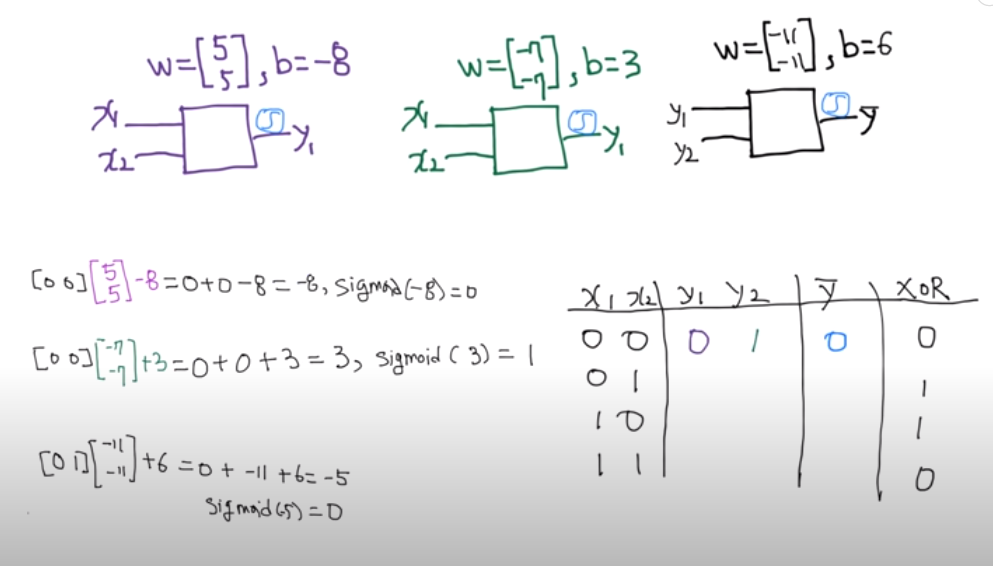 w=[5 5], b=-8
w=[-7 -7], b=3
w=[-11 -11], b=6
x1
x2
S
y1
x1
x2
S
y1
y1
y2
S
ȳ
[0 0][5 5]-8=0+0-8=-8, sigmoid(-8)=0
[0 0][-7 -7]+3=0+0+3=3, sigmoid(3)=1
[0 1][-11 -11]+6=0+-11+6=-5
sigmoid(-5)=0
x1 x2 y1 y2 ȳ XOR
0 0 0 1 0 0
0 1 1
1 0 1
1 1 0